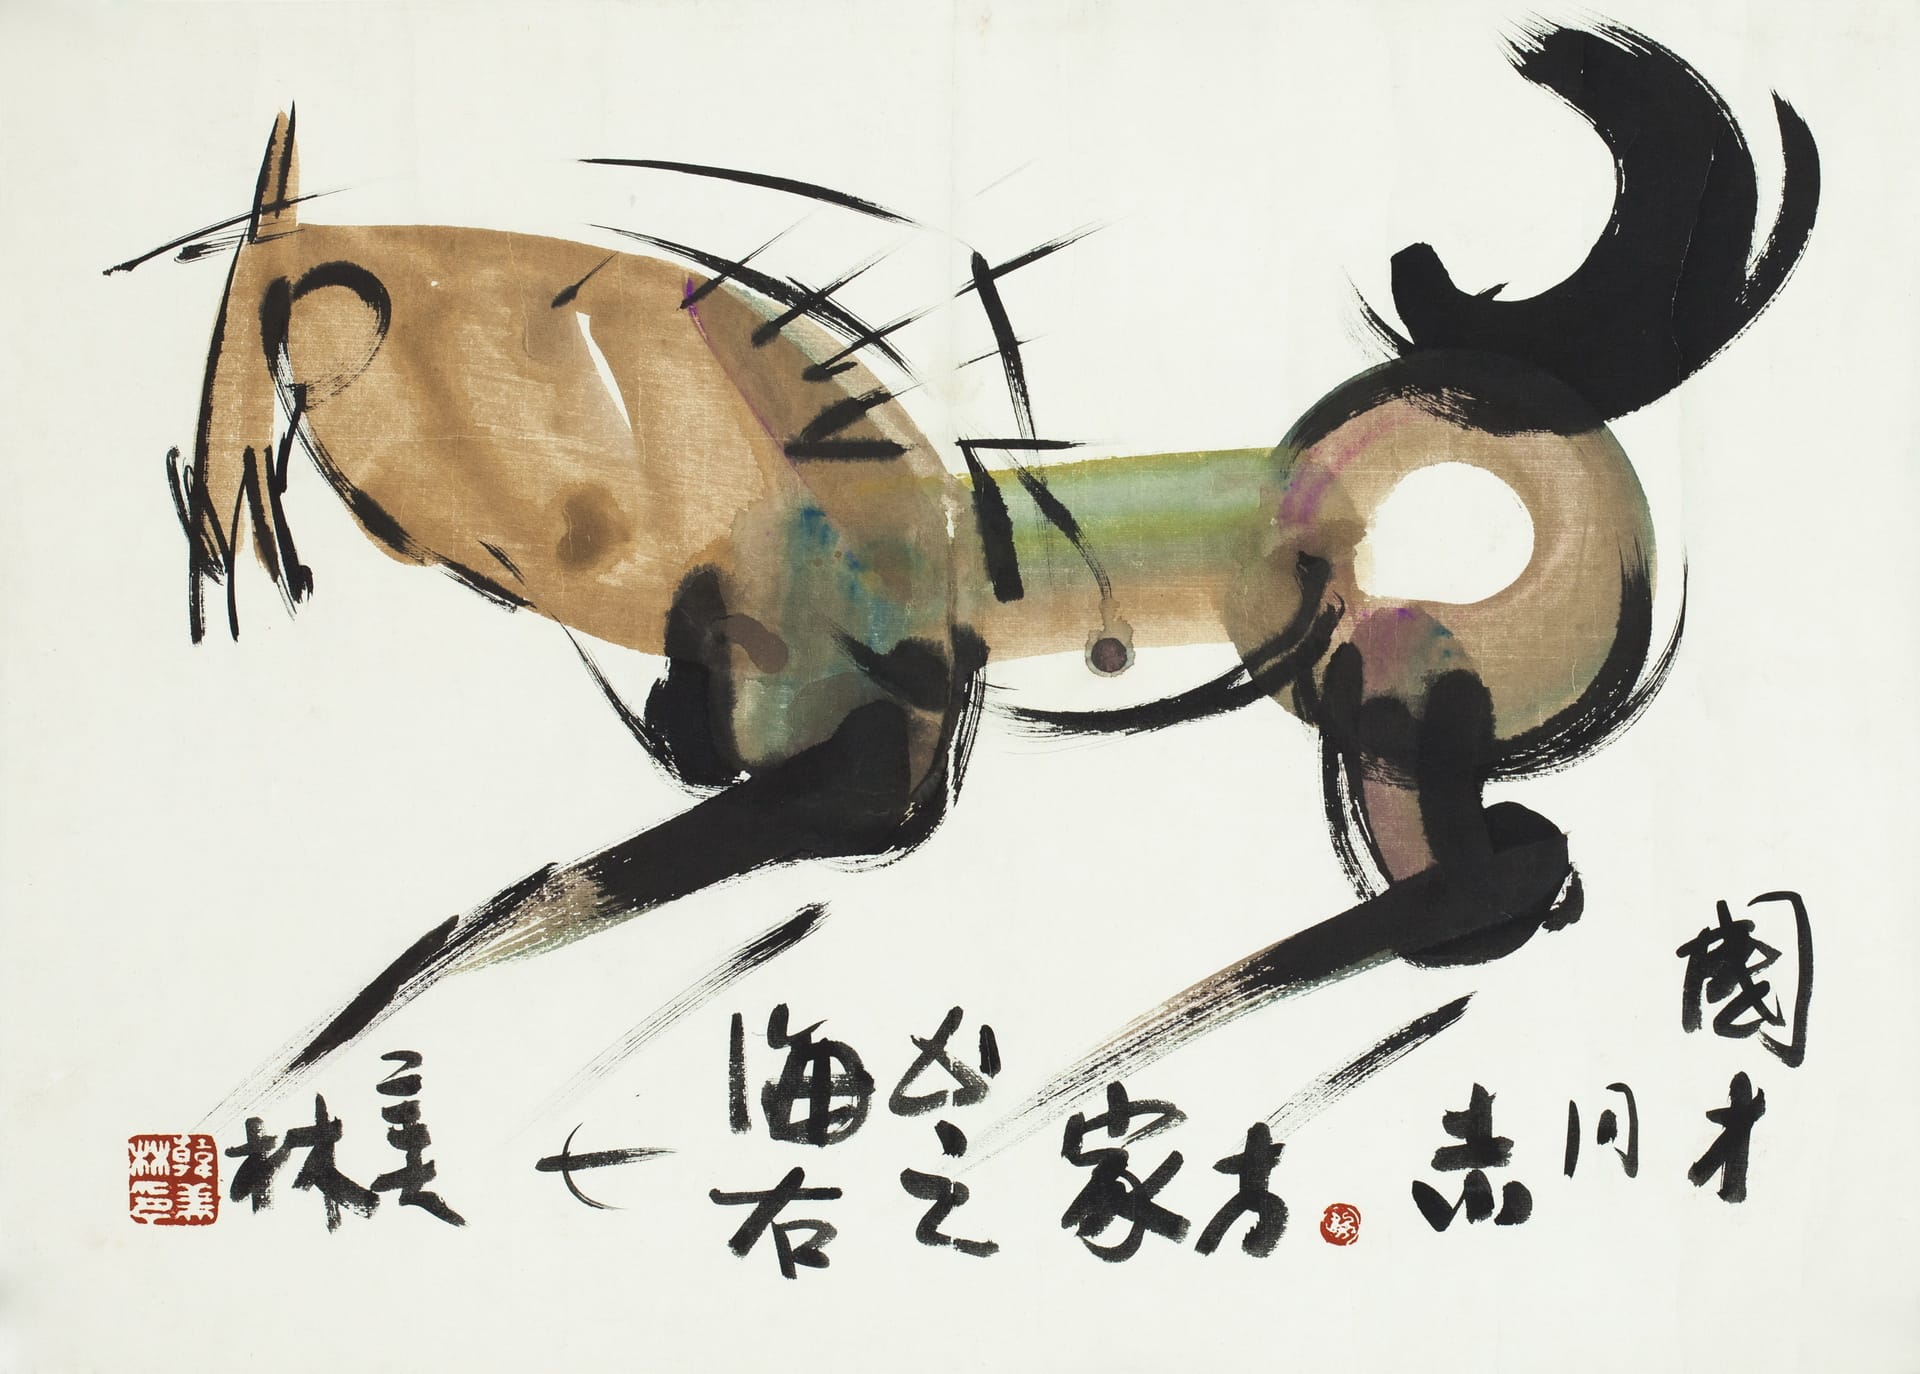 國才
同志
方家
之
海右
七
美林
韓美林印